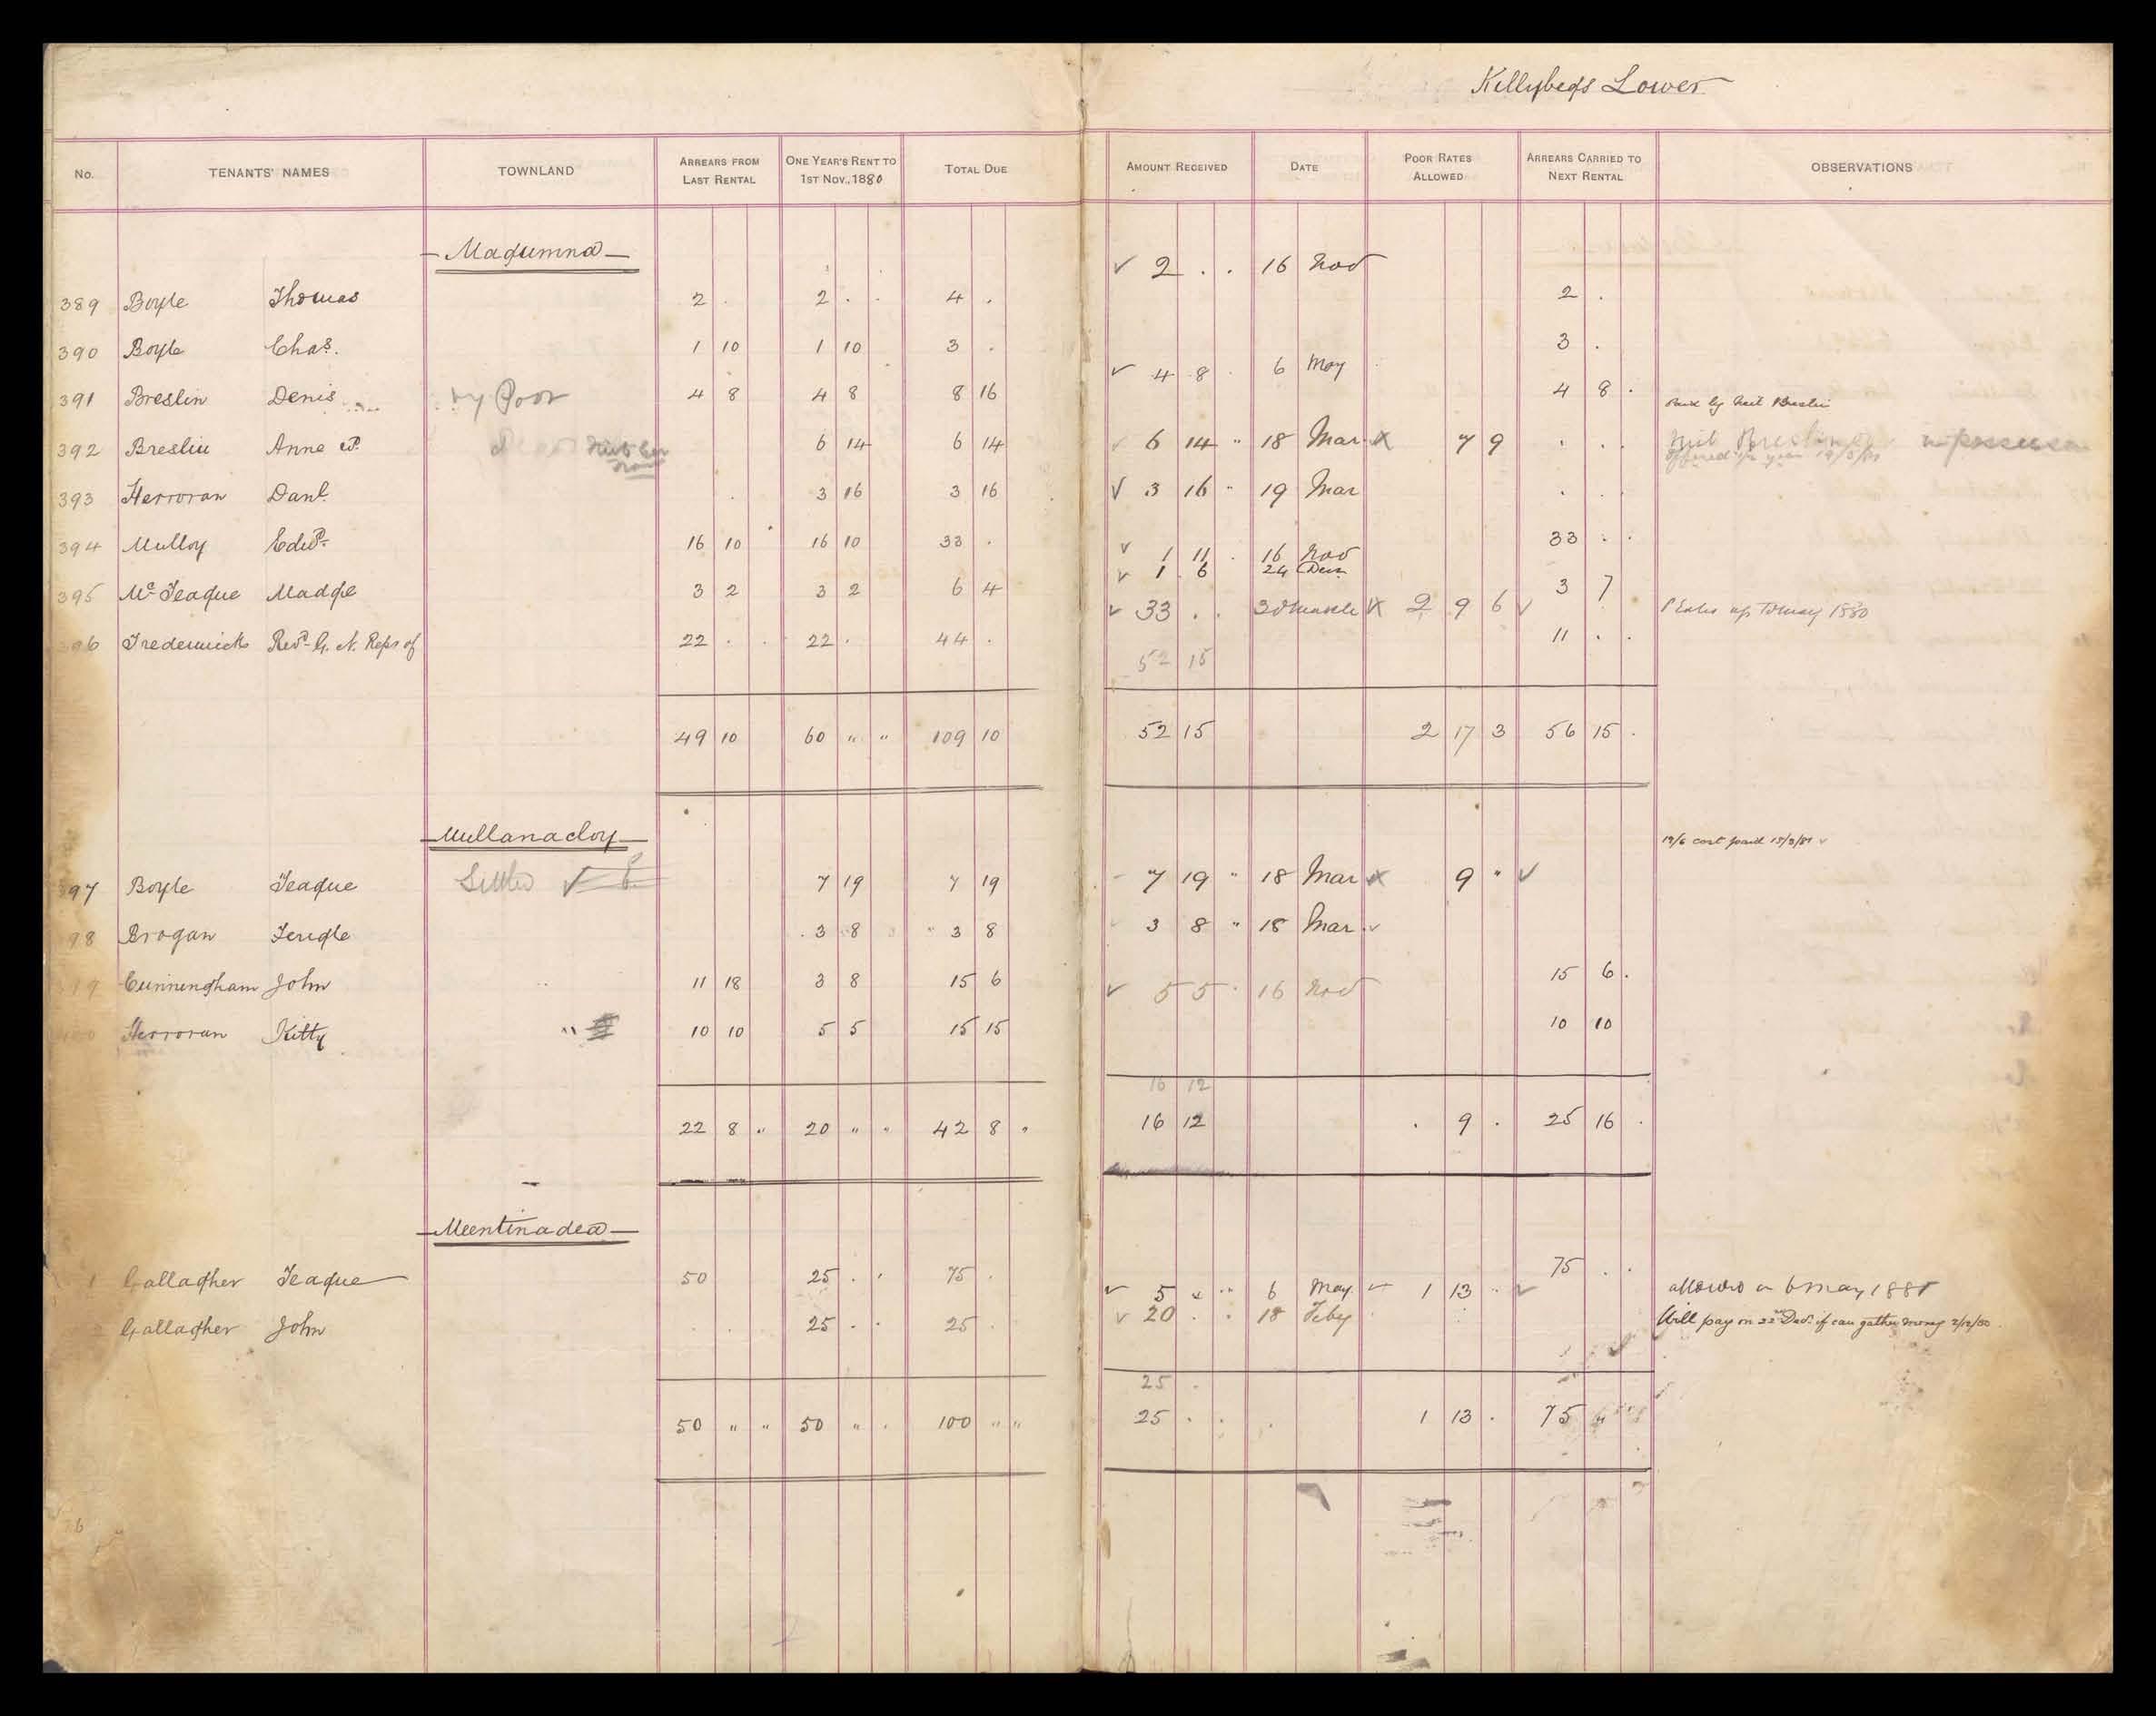 Killybegs Lower
No. TENANTS' NAMES TOWNLAND ARREARS FROM LAST RENTAL ONE YEAR'S RENT TO 1ST NOV., 1880 TOTAL DUE AMOUNT RECEIVED DATE POOR RATES ALLOWED ARREARS CARRIED TO NEXT RENTAL OBSERVATIONS
Magumna
389 Boyle Thomas 2 . 2 . . 4 . ✓ 2 . . 16 Nov 2 .
390 Boyle Chas. 1 10 1 10 3 . 3 .
391 Breslin Denis Poor 4 8 4 8 8 16 ✓ 4 8 . 6 May 4 8 . Paid by Neil Breslin
392 Breslin Anne 6 14 6 14 ✓ 6 14 " 18 Mar x 7 9 . . . Neil Breslin in possession
393 Herroran Danl. . 3 16 3 16 ✓ 3 16 " 19 Mar . . .
394 Mulloy Edwd. 16 10 16 10 33 . 33 . .
395 McTeague Madge 3 2 3 2 6 4 ✓ 1 11 . 16 Nov 3 7
✓ 1 6 24 Decr.
396 Tredennick Revd. G. N. Reps of 22 . . 22 . 44 . ✓ 33 . . 30 March x 2 9 6 ✓ 11 . . up to May 1880
52 15
49 10 60 " " 109 10 52 15 2 17 3 56 15 .
Mullanacloy
19/6 cost paid 15/3/81 ✓
97 Boyle Teague Settled ✓ 7 19 7 19 7 19 " 18 Mar x 9 " ✓
98 Brogan Terigle 3 8 " 3 8 3 8 " 18 Mar ✓
99 Cunningham John 11 18 3 8 15 6 15 6 .
Herroran Kitty 10 10 5 5 15 15 ✓ 5 5 . 16 Nov 10 10
16 12
22 8 " 20 " " 42 8 " 16 12 . 9 . 25 16 .
Meentinadea
1 Gallagher Teague 50 25 . . 75 . ✓ 5 " " 6 May ✓ 1 13 " ✓ 75 . . allowed on 6 May 1881
2 Gallagher John . . 25 . . 25 . ✓ 20 . . 18 Feby Will pay on 22nd Decr. if can gather money 2/12/80
25 .
50 " " 50 " . 100 " " 25 . . 1 13 . 75 "